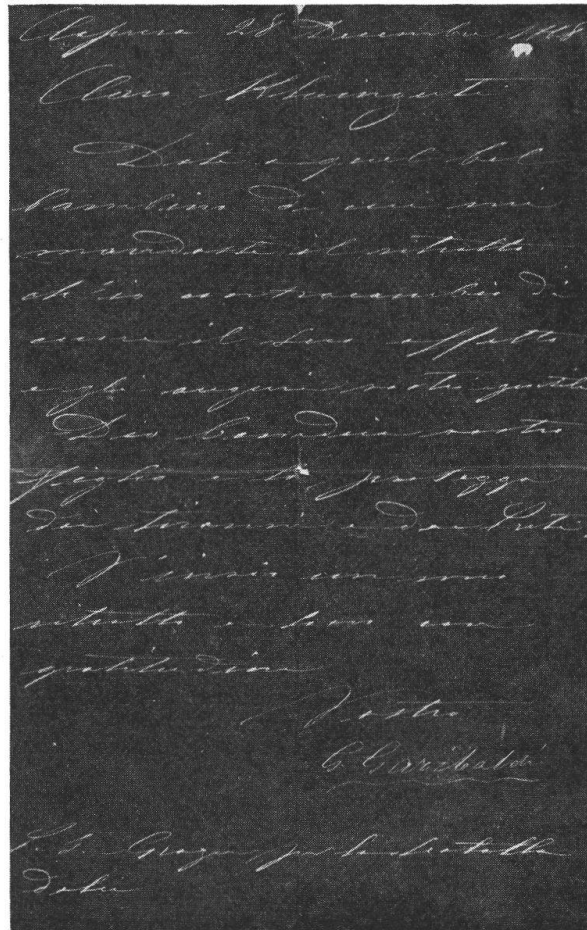 Caprera 28 Decembre 1868
Caro
Dite a quel bel
bambino di cui mi
mandaste il ritratto
ch'io contracambio di
cuore il suo affetto
e gli auguri vostri gentili
Dio benedica vostro
figlio e lo protegga
dai tiranni e dai Preti.
V'invio un mio
ritratto e sono con
gratitudine
Vostro
G. Garibaldi
P. S. Grazie per la